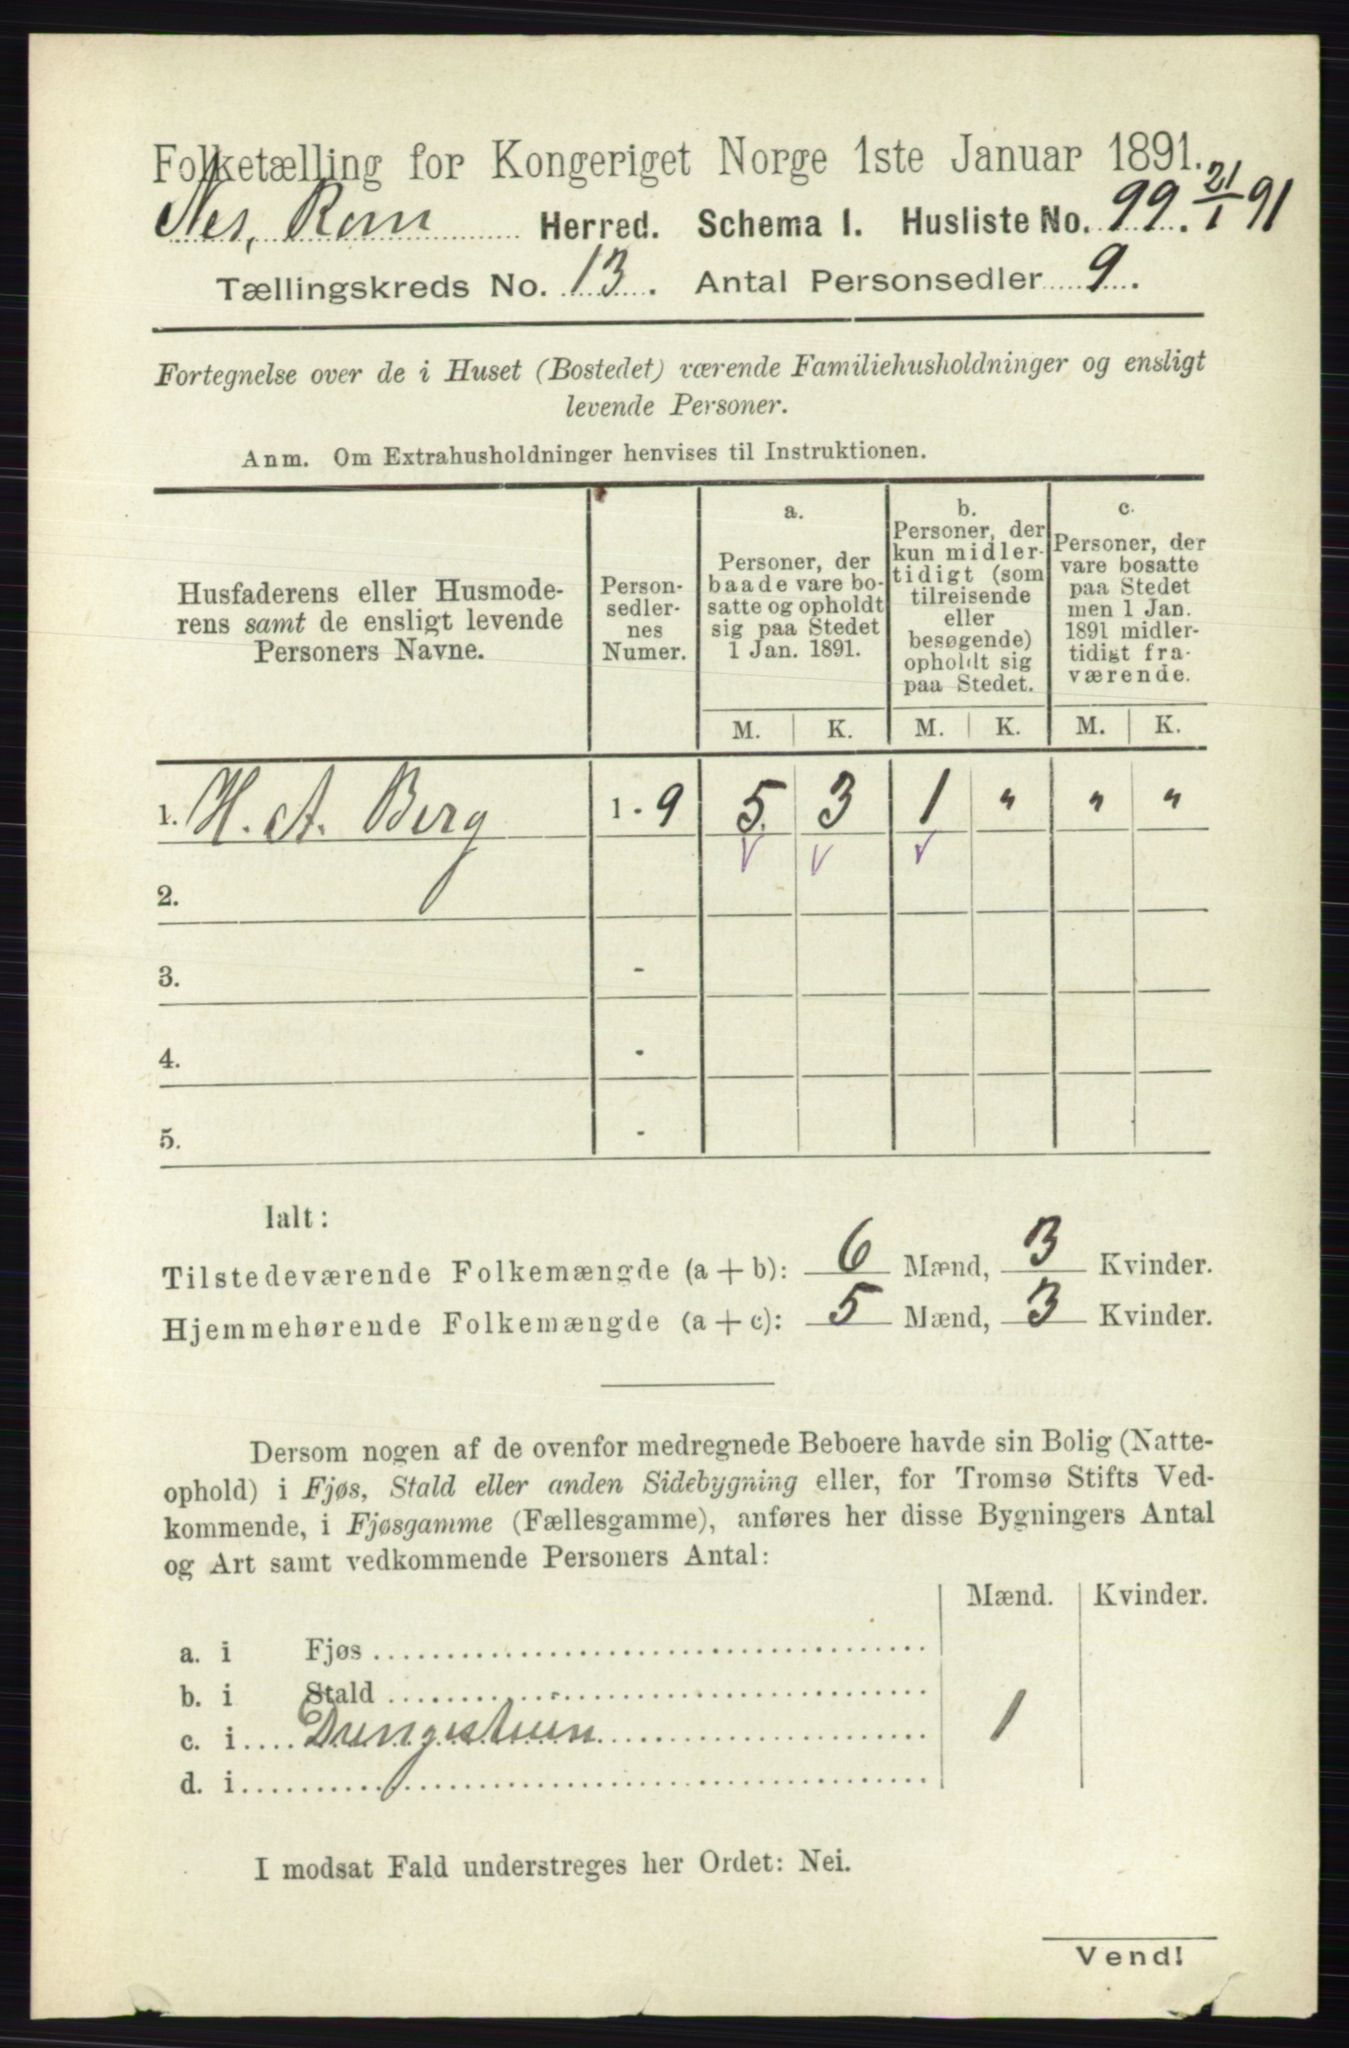 Folketælling for Kongeriget Norge 1ste Januar 1891.
Nes, Rom Herred. Schema I. Husliste No. 99. 21/1 91
Tællingskreds No. 13. Antal Personsedler 9.
Fortegnelse over de i Huset (Bostedet) værende Familiehusholdninger og ensligt
levende Personer.
Anm. Om Extrahusholdninger henvises til Instruktionen.
Husfaderens eller Husmode-
rens samt de ensligt levende
Personers Navne.
Person-
sedler-
nes
Numer.
a.
Personer, der
baade vare bo-
satte og opholdt
sig paa Stedet
1 Jan. 1891.
b.
Personer, der
kun midler-
tidigt (som
tilreisende
eller
besøgende)
opholdt sig
paa Stedet.
c.
Personer, der
vare bosatte
paa Stedet
men 1 Jan.
1891 midler-
tidigt fra-
værende.
M. K. M. K. M. K.
1. H. A. Berg 1 - 9 5 3 1 " " "
2.
3. -
4. -
5. -
Ialt:
Tilstedeværende Folkemængde (a + b): 6 Mænd, 3 Kvinder.
Hjemmehørende Folkemængde (a + c): 5 Mænd, 3 Kvinder.
Dersom nogen af de ovenfor medregnede Beboere havde sin Bolig (Natte-
ophold) i Fjøs, Stald eller anden Sidebygning eller, for Tromsø Stifts Ved-
kommende, i Fjøsgamme (Fællesgamme), anføres her disse Bygningers Antal
og Art samt vedkommende Personers Antal:
Mænd. Kvinder.
a. i Fjøs
b. i Stald
c. i Drengestuen 1
d. i
I modsat Fald understreges her Ordet: Nei.
Vend!